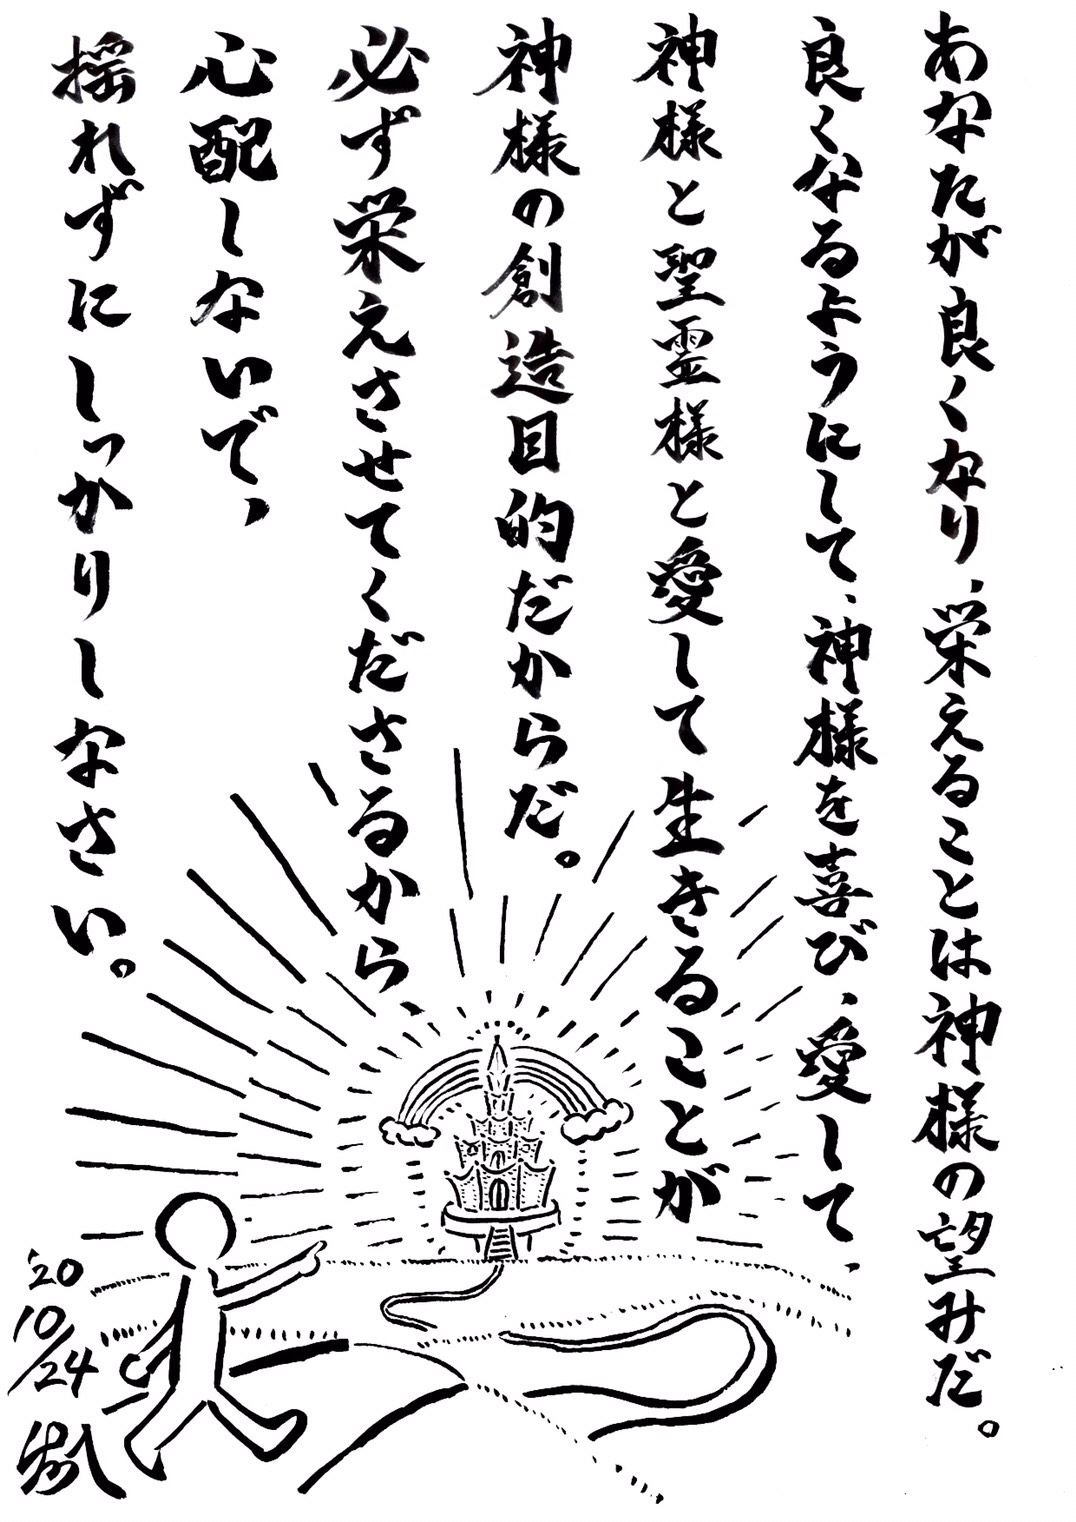 あなたが良くなり、栄えることは神様の望みだ。
良くなるようにして、神様を喜び、愛して、
神様と聖霊様と愛して生きることが
神様の創造目的だからだ。
必ず栄えさせてくださるから、
心配しないで、
揺れずにしっかりしなさい。
'20
10/24